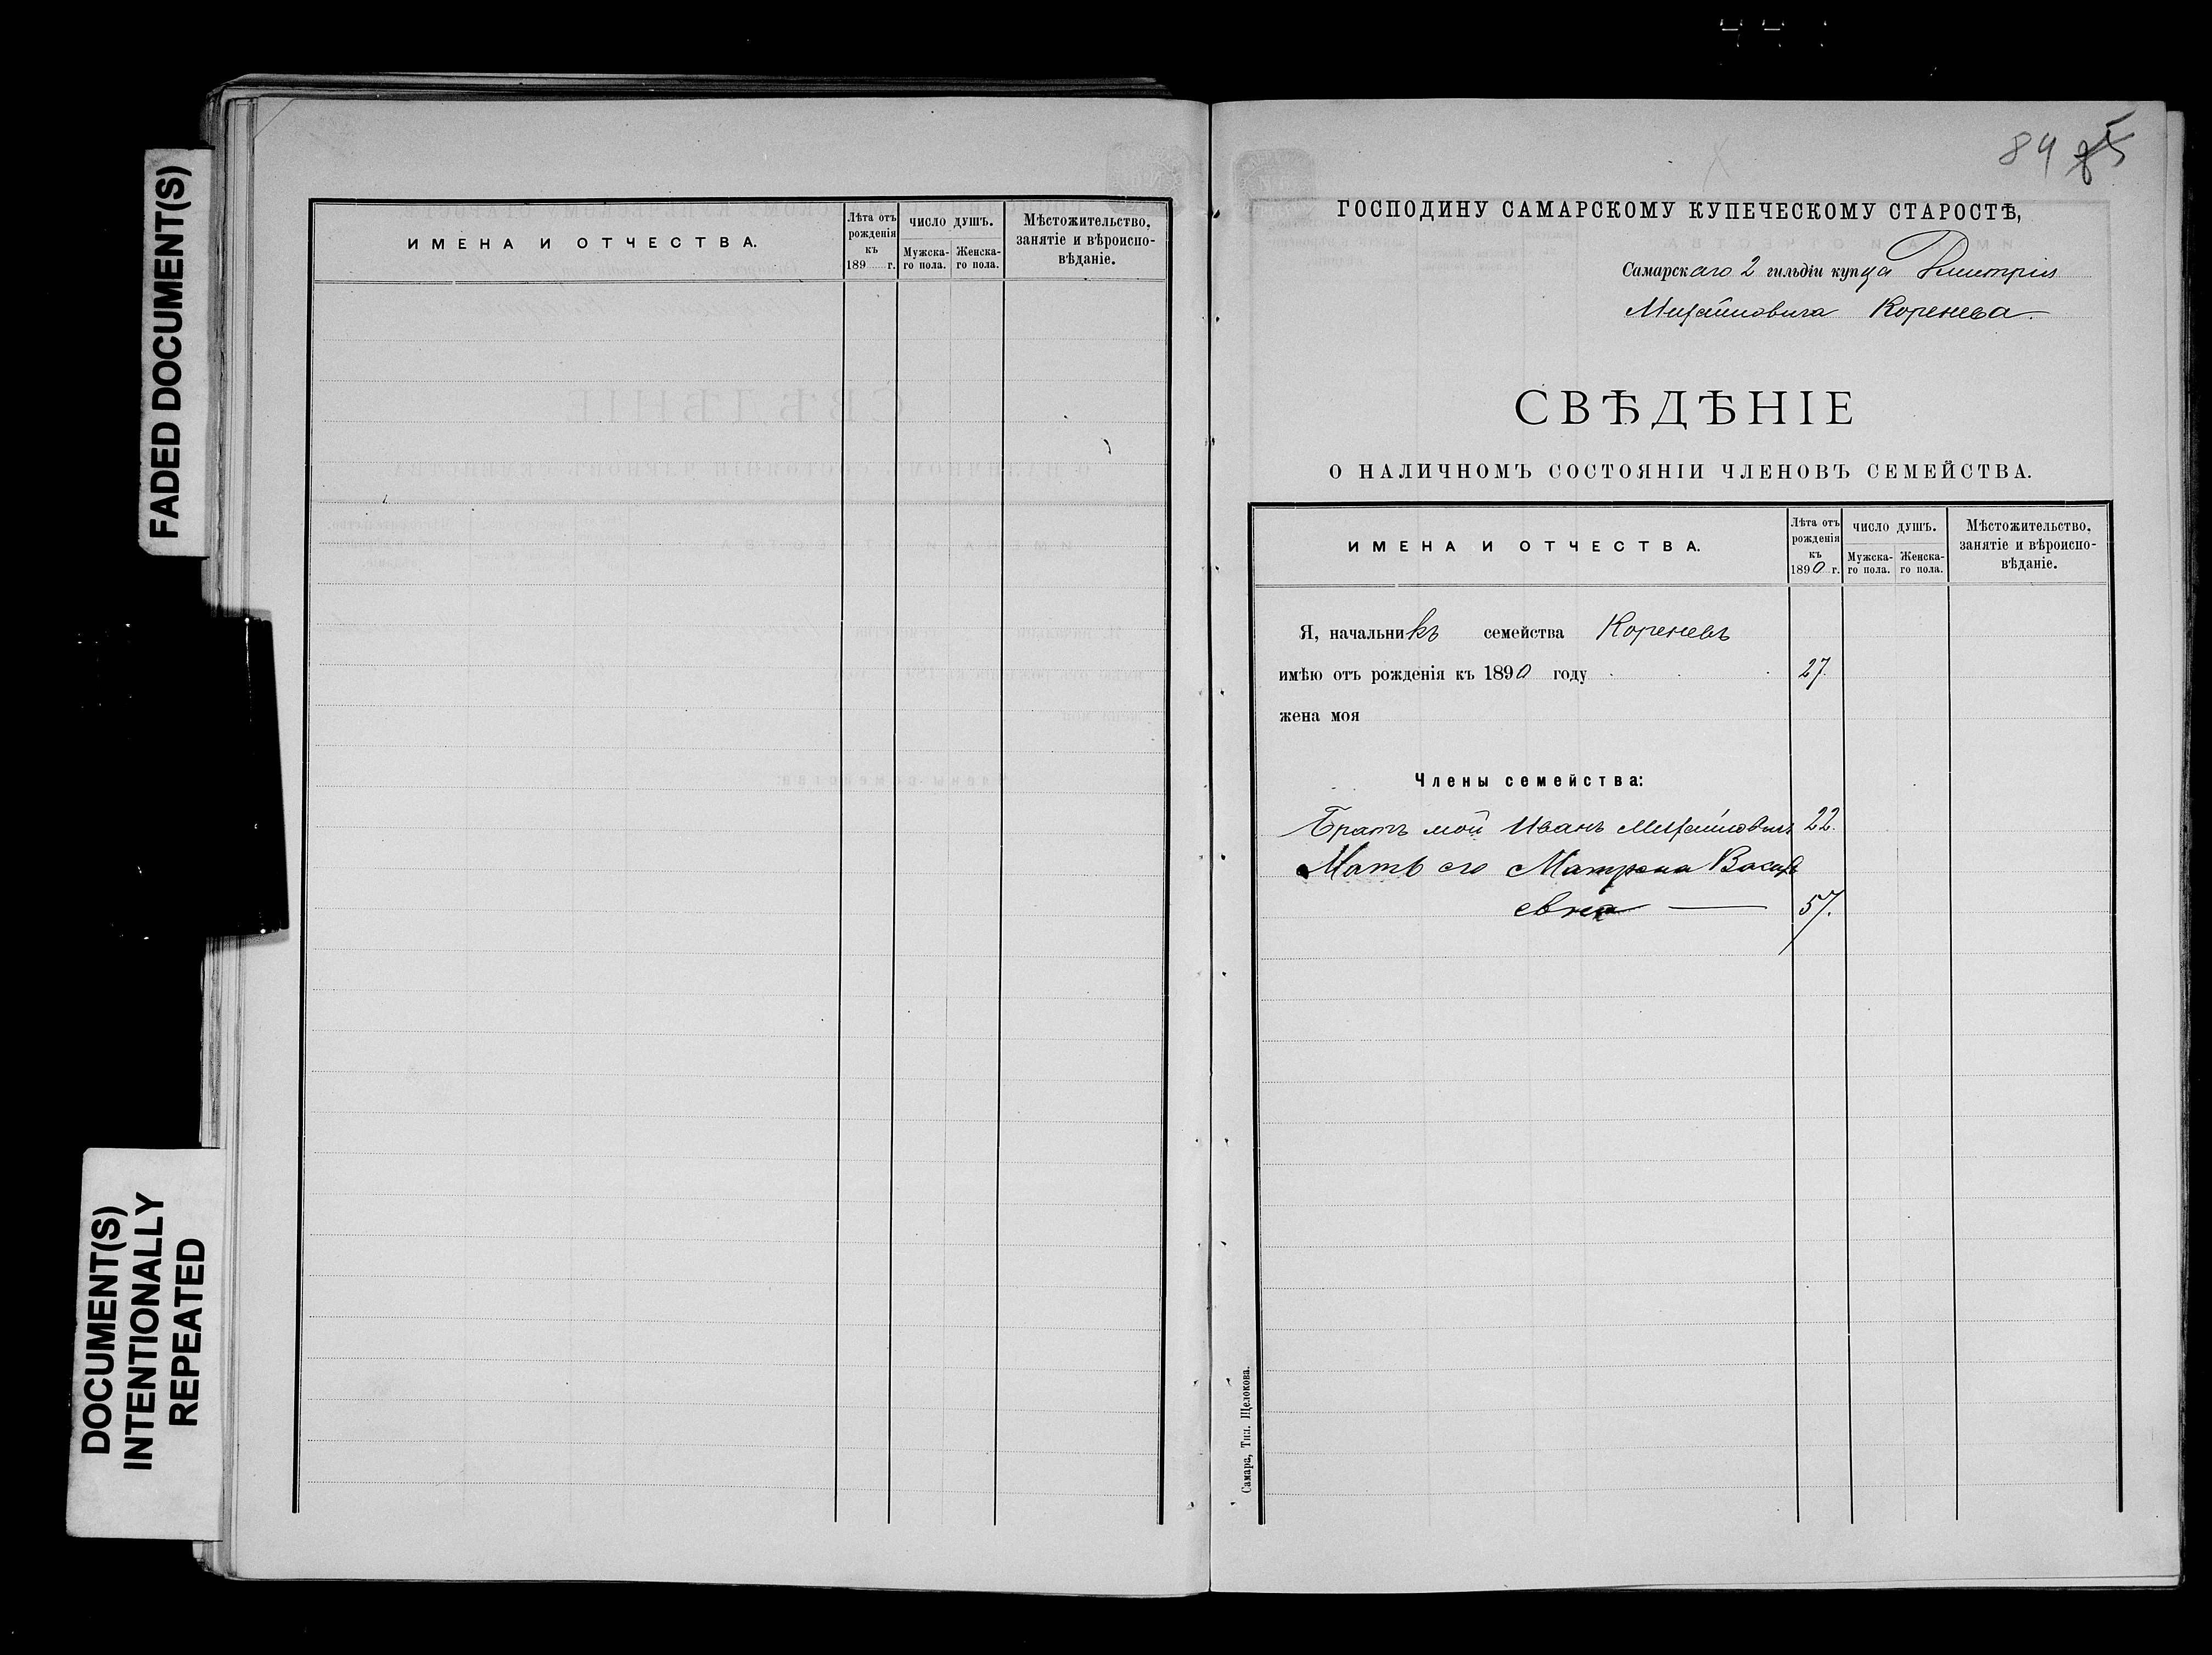 FADED DOCUMENT(S)
DOCUMENT(S)
INTENTIONALLY
REPEATED
ИМЕНА И ОТЧЕСТВА.
Лѣта отъ рожденія къ 189 г.
ЧИСЛО ДУШЪ.
Мужска-го пола.
Женска-го пола.
Мѣстожительство,
занятіе и вѣроиспо-
вѣданіе.
84 85
ГОСПОДИНУ САМАРСКОМУ КУПЕЧЕСКОМУ СТАРОСТѢ,
Самарскаго 2 гильдіи купца Дмитрія
Михайловича Коренева.
СВѢДѢНІЕ
О НАЛИЧНОМЪ СОСТОЯНІИ ЧЛЕНОВЪ СЕМЕЙСТВА.
ИМЕНА И ОТЧЕСТВА.
Лѣта отъ рожденія къ 1890 г.
ЧИСЛО ДУШЪ.
Мужска-го пола.
Женска-го пола.
Мѣстожительство,
занятіе и вѣроиспо-
вѣданіе.
Я, начальникъ семейства Кореневъ
имѣю отъ рожденія къ 1890 году 27.
жена моя
Члены семейства:
Братъ мой Иванъ Михайловичъ 22.
Мать его Матрена Василь
евна — 57.
Самара, Тип. Щелокова.